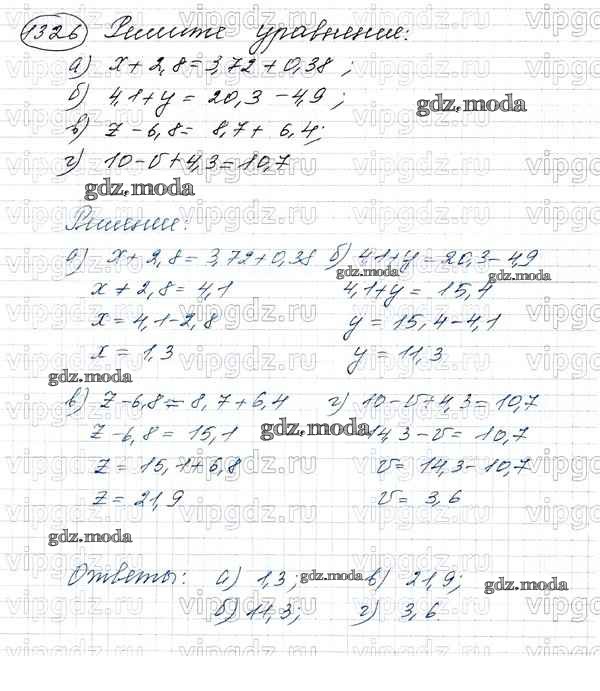 1326 Решите уравнение:
а) x + 2,8 = 3,72 + 0,38 ;
б) 4,1 + y = 20,3 - 4,9 ;
gdz.moda
в) z - 6,8 = 8,7 + 6,4;
г) 10 - v + 4,3 = 10,7
gdz.moda
Решение:
а) x + 2,8 = 3,72 + 0,38 б) 4,1 + y = 20,3 - 4,9
gdz.moda gdz.moda
x + 2,8 = 4,1 4,1 + y = 15,4
x = 4,1 - 2,8 y = 15,4 - 4,1
x = 1,3 y = 11,3
gdz.moda
в) z - 6,8 = 8,7 + 6,4 г) 10 - v + 4,3 = 10,7
gdz.moda
z - 6,8 = 15,1 14,3 - v = 10,7
z = 15,1 + 6,8 v = 14,3 - 10,7
z = 21,9 v = 3,6
gdz.moda
Ответы: а) 1,3; gdz.moda в) 21,9; gdz.moda
б) 11,3; г) 3,6
vipgdz.ru